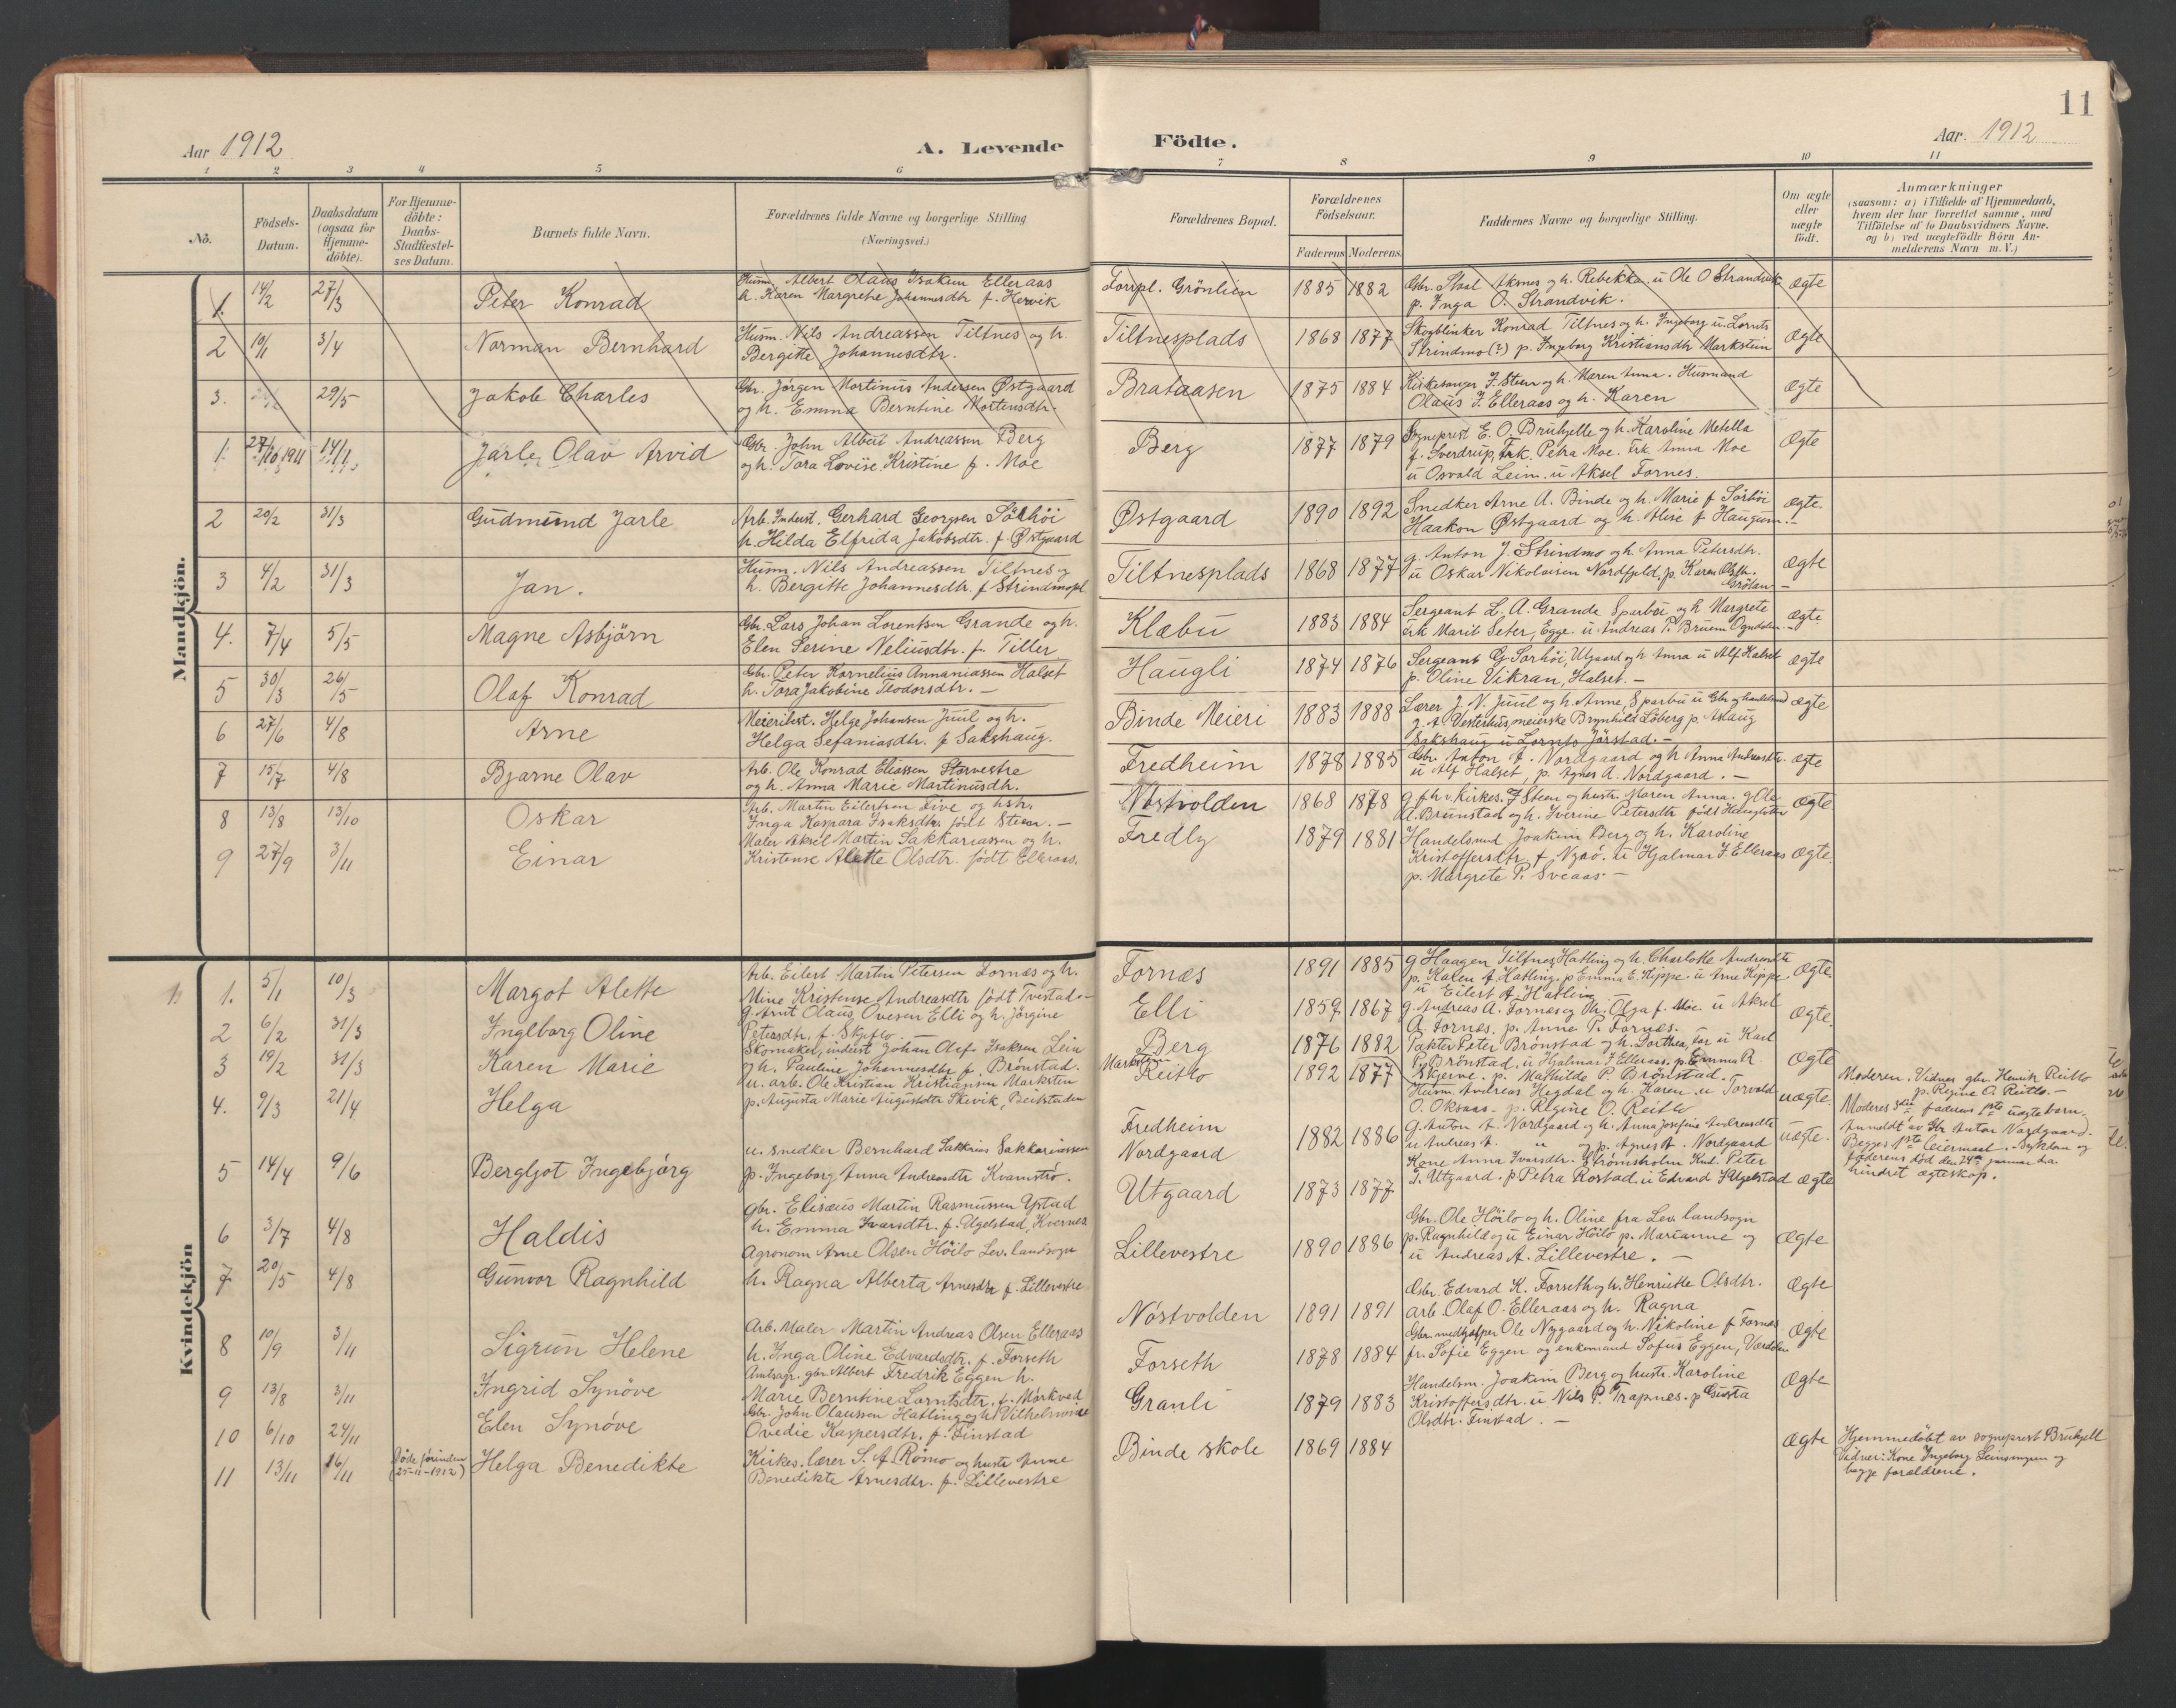 11
Aar 1912
A. Levende Födte.
Aar. 1912
1 2 3 4 5 6 7 8 9 10 11
No.
Födsels-Datum.
Daabsdatum (ogsaa for Hjemme-döbte).
For Hjemme-döbte: Daabs-Stadfæstel-ses Datum.
Barnets fulde Navn.
Forældrenes fulde Navne og borgerlige Stilling (Næringsvei.)
Forældrenes Bopæl.
Forældrenes Födselsaar.
Faderens Moderens
Faddernes Navne og borgerlige Stilling.
Om ægte eller uægte födt.
Anmærkninger
(saasom: a) i Tilfælde af Hjemmedaab,
hvem der har forrettet samme, med
Tilföielse af to Daabsvidners Navne,
og b) ved uægtefödte Börn An-
melderens Navn m. V.)
Mandkjön.
1. 14/2 27/3 Peter Konrad
Husm. Albert Olaus Isaksen Elleraas
h. Karen Margrethe Johannesdtr f. Hervik
Forrpl. Grönlien 1885 1882
p. Inga O. Strandvik.
ægte
2 10/1 3/4 Norman Bernhard
Husm. Nils Andreassen Tiltnes og h.
Bergitte Johannesdtr.
Tiltnesplads 1868 1877
Skogblinker Konrad Tiltnes og h. Ingeborg u. Lornts
Strindmo(?) p. Ingeborg Kristiansdtr Markstein
ægte
3. 29/5 Jakob Charles
Gbr. Jörgen Mortinus Andersen Østgaard
og h. Emma Berntine Mortensdtr.
Brataasen 1875 1884
Kirkesanger J. Steen og h. Maren Anna. Husmand
Olaus J. Elleraas og h. Karen
ægte
1. 27/10 1911 14/1 Jarle Olav Arvid
Gbr. John Albert Andreassen Berg
og h. Tora Lovise Kristine f. Moe
Berg 1877 1879
Sogneprest E. O. Bruhjelle og h. Karoline Metella
f. Sverdrup, Frk. Petra Moe. Frk. Anna Moe
u Osvald Leim. u Aksel Fornes.
Ægte
2 20/2 31/3 Gudmund Jarle
Arb. Inderst. Gerhard Georgsen Sörhöi
h. Hilda Elfrida Jakobsdtr. f. Østgaard
Østgaard 1890 1892
Snedker Arne A. Binde og h. Marie f Sörhöi
Haakon Østgaard og h. Alise f Haugum.-
ægte.
3 4/2 31/3 Jan.
Husm. Nils Andreassen Tiltnes og
h. Bergitte Johannesdtr. f Strindmopl
Tiltnesplads 1868 1877
g. Anton J. Strindmo og h. Anna Petersdtr.
u Oskar Nikolaisen Nordfjeld. p. Karen
Grötan -
ægte
4. 7/4 5/5 Magne Asbjörn
Gbr. Lars Johan Lorentsen Grande og h.
Elen Serine Neliusdtr. f. Tiller
Klæbu 1883 1884
Sergeant L. A. Grande Sparbu og h Margrete
Frk Marit Seter, Egge. u Andreas P. Bruem
ægte
5 30/3 26/5 Olaf Konrad
Gbr. Peter Kornelius Annaniassen Halset
h. Tora Jakobine Teodorsdtr. -
Haugli 1874 1876
Sergeant G Sorhöi, Utgaard og h Anna u Alf Halset
p. Oline Vikran, Halset. -
ægte
6 27/6 4/8 Arne
Meieribest. Helge Johansen Juul og h.
Helga Sefaniasdtr. f Sakshaug.
Binde Meieri 1883 1888
Lærer J. N. Juul og h. Anne, Sparbu u Gbr og handelsmd
g. A Vesterhus, meierske Brynhild Löberg p. Aslaug
Sakshaug u Lornts Jörstad. -
ægte
7 15/7 4/8 Bjarne Olav
Arb. Ole Konrad Eliassen Storvestre
og h. Anna Marie Martinusdtr.
Fredheim 1878 1885
Gbr. Anton A. Nordgaard og h Anna Andreasdtr.
u Alf Halset, p. Agnes A. Nordgaard. -
ægte
8 13/8 13/10 Oskar
Arb. Martin Eilertsen Five og hstr.
Inga Kaspara Isaksdtr. födt Steen. -
Nöstvolden 1868 1878
g. fhv. Kirkes. J Steen og hustr. Maren Anna. g Ole
A. Brunstad og h. Iverine Petersdtr födt
ægte
9 27/9 3/11 Einar
Maler Aksel Martin Sakkariassen og h.
Kristense Alette Olsdtr. födt Elleraas.
Fredly 1879 1881
Handelsmd Joakim Berg og h. Karoline
Kristoffersdtr. f. Nysö. u Hjalmar J. Elleraas
p. Margrete P. Sveaas. -
Ægte.
Kvindekjön
1. 5/1 10/3 Margot Alette
Arb. Eilert Martin Petersen Fornæs og h.
Mine Kristense Andreasdtr födt Tvestad. -
Fornæs 1891 1885
g Haagen Tiltnes, Hatling og h. Charlotte Andreasdtr
p. Karen A. Hatling. p Emma E. Kippe. u Arne Kippe.
u Eilert A Hatling -
Ægte.
2 6/2 31/3 Ingeborg Oline
g. Arnt Olaus Ovesen Elli og h. Jörgine
Petersdtr. f. Skjeflo -
Elli 1859 1867
g. Andreas A. Fornæs og h. Olga f. Moe. u Aksel
A. Fornæs. p. Anne P. Fornæs.
Ægte.
3 19/2 31/3 Karen Marie
Skomaker, inderst Johan Olaf Isaksen Lein
og h. Pauline Johannesdtr f. Brönstad.
Berg 1876 1882
Pakter Peter Brönstad og h. Dorthea, Far u Karl
P. Brönstad. u Hjalmar J Elleraas. p. Emma A.
Skjerve. p. Mathilde P. Brönstad.
Ægte
4. 9/3 21/4 Helga
u. arb. Ole Kristian Kristiansen Marksten
p. Augusta Marie Augustdtr Skevik, Beitstaden
Reitlo 1892 1877
Husm Andreas Hegdal og h Karen. u Torvald
O. Oksaas. p. Regine O. Reitlo
uægte.
Moderen. Vidner gbr. Henrik Reitlo
p. Regine O. Reitlo. -
Moderes 3die faderens 1ste uægte barn.
5 14/4 9/6 Bergljot Ingebjörg
u. snedker Bernhard Sakkarias Sakkariassen
p. Ingeborg Anna Andreasdtr Kvamströ.
Fredheim
Nordgaard 1882 1886
g. Anton A. Nordgaard og h. Anna Josefine Andreasdtr
u Andreas A. u og p. Agnes A. Nordgaard
uægte.
Anmeldt av Gbr Anton Nordgaard.
Begges 1ste leiermaal. - Sykdom og
faderens död den 24de januar d.a.
hindret ægteskap.
6 3/7 4/8 Haldis
gbr. Elisæus Martin Rasmussen Ystad
h. Emma Ivarsdtr. f. Ugelstad, Kvernes
Utgaard 1873 1877
Kone Anna Ivarsdtr. Strömsholm Knd. Peter
J. Utgaard. p Petra Rostad. u Edvard J Ugelstad
ægte
7 20/5 4/8 Gunvor Ragnhild
Agronom Arne Olsen Höilo Lev. landsogn
h. Ragna Alberta Arnesdtr f. Lillevestre
Lillevestre 1890 1886
Gbr. Ole Höilo og h. Oline fra Lev. landsogn
p. Ragnhild og u Einar Höilo p. Marianne og
u Andreas A. Lillevestre. -
Ægte
8 10/9 3/11 Sigrun Helene
Arb. Maler Martin Andreas Olsen Elleraas
h. Inga Oline Edvardsdtr. f. Forseth
Nöstvolden 1891 1891
Gbr. Edvard K. Forseth og h. Henriette Olsdtr.
arb. Olaf O. Elleraas og h. Ragna
Ægte
9 13/8 3/11 Ingrid Synöve
Amtsagr. gbr Albert Fredrik Eggen h.
Marie Berntine Lorntsdtr. f. Mörkved
Forseth 1878 1884
Gbr. medhjelper Ole Nygaard og h. Nikoline f Fornæs
fr. Sofie Eggen og enkemand Sofus Eggen, Værdalen
Ægte
10 6/10 24/11 Elen Synöve
Gbr. John Olaussen Hatling og h Vilhelmine
Ovedie Kaspersdtr. f. Finstad
Granli 1879 1883
Handelsm. Joakim Berg og hustr. Karoline
Kristoffersdtr. u Nils P. Trapnes. p Gusta
Olsdtr. Finstad. -
Ægte
11 13/11 16/11 Döde forinden (25-11-1912) Helga Benedikte
Kirkes. lærer S. A. Römo og hustr Anne
Benedikte Arnesdtr. f. Lillevestre
Binde skole 1869 1884
Ægte
Hjemmedöbt av sogneprest Bruhjell
Vidner: Kone Ingeborg Leinsmyren og
begge forældrene.